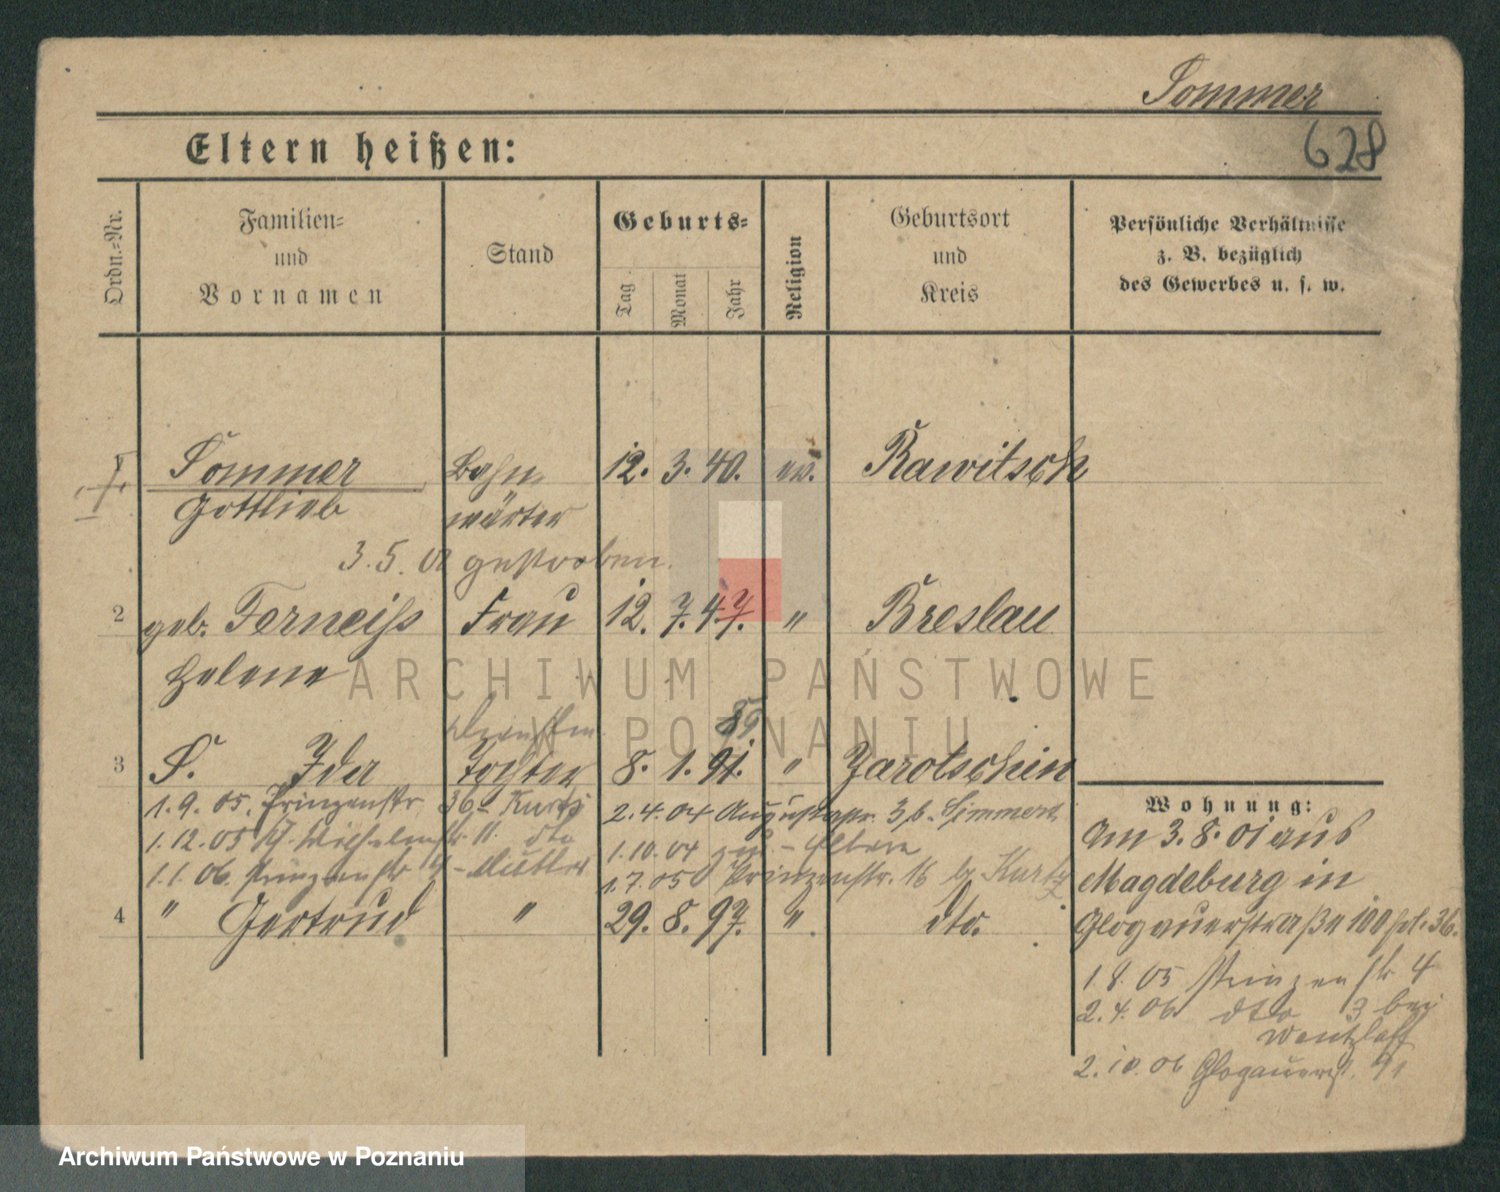 Sommer
628
Eltern heißen:
Ordn.-Nr.
Familien-
und
Vornamen
Stand
Geburts-
Tag
Monat
Jahr
Religion
Geburtsort
und
Kreis
Persönliche Verhältnisse
z. B. bezüglich
des Gewerbes u. s. w.
Sommer Bahn 12. 3. 40. ev. Rawitsch
Gottlieb wärter
3.5. gestorben.
2 geb. Ferneiß Frau 12. 7. 47. " Breslau
Helene
ARCHIWUM PAŃSTWOWE
W POZNANIU
89
3 S. Ida Tochter 8. 1. 91. " Jarotschin
1.9.05. Prinzenstr. 36 - Kurtz 2.4.04 3b.
1.12.05 11. dto 1.10.04 - Eltern
1.1.06. Prinzenstr - Mutter 1.7.05 Prinzenstr. 16 Kurtz
4 " Gertrud " 29. 8. 97. " dto.
Wohnung:
Am 3.8.01 aus
Magdeburg in
Glogauerstraße 100 36.
1.8.05 Prinzenstr 4
2.4.06 dto 3 bei
Wentzlaff
2.10.06 Glogauerst. 91
Archiwum Państwowe w Poznaniu